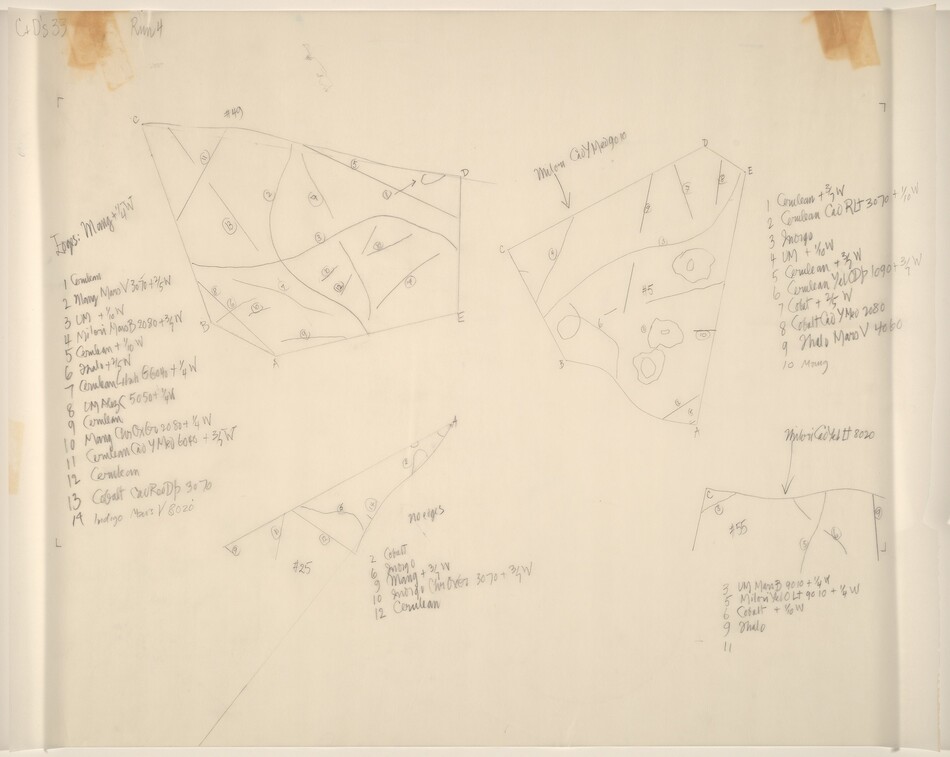 C+D's 33 Run 4
#49
C
D
E
A
B
1 Cerulean
2 Mang Mars V 3070 + 3/5 W
3 UM + 1/10 W
4 Milori Mars B 2080 + 3/5 W
5 Cerulean + 1/10 W
6 Thalo + 3/5 W
8 UM Aliz C 5050 + 1/4 W
9 Cerulean
10 Mang Chr Ox Gr 2080 + 1/4 W
11 Cerulean Cad Y Med 6040 + 3/5 W
12 Cerulean
13 Cobalt Cad Red Dp 3070
14 Indigo Mars V 8020
Milori Cad Y Med 9010
D
E
C
#5
B
A
1 Cerulean + 3/5 W
2 Cerulean Cad R Lt 3070 + 1/10 W
3 Indigo
4 UM + 1/10 W
5 Cerulean + 3/5 W
6 Cerulean Yel O Dp 1090 + 3/5 W
7 Cobalt + 3/5 W
8 Cobalt Cad Y Med 2080
9 Thalo Mars V 4060
10 Mang
A
#25
no edges
2 Cobalt
6 Indigo
9 Mang + 3/5 W
10 Indigo Chr Ox Gr 3070 + 3/5 W
12 Cerulean
Milori Cad Yel Lt 8020
C
#55
3 UM Mars B 9010 + 1/4 W
5 Milori Yel O Lt 9010 + 1/10 W
6 Cobalt + 1/10 W
9 Thalo
11